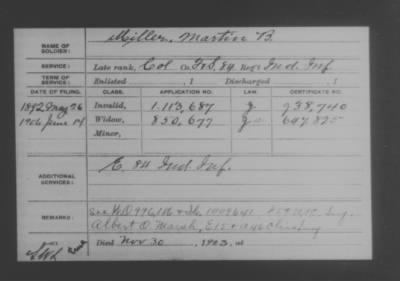 NAME OF SOLDIER: Miller, Martin B.
SERVICE: Late rank, Col Co. F&S, 84 Reg't Ind. Inf.
TERM OF SERVICE: Enlisted , 1 Discharged , 1
DATE OF FILING. CLASS. APPLICATION NO. LAW. CERTIFICATE NO.
1892 May 26 Invalid, 1.113,687 J. 938,740
1906 June 14 Widow, 850,677 647825
Minor,
ADDITIONAL SERVICES: E. 84 Ind. Inf.
REMARKS: See
Albert O. Marsh,
Died Nov 30, 1903, at